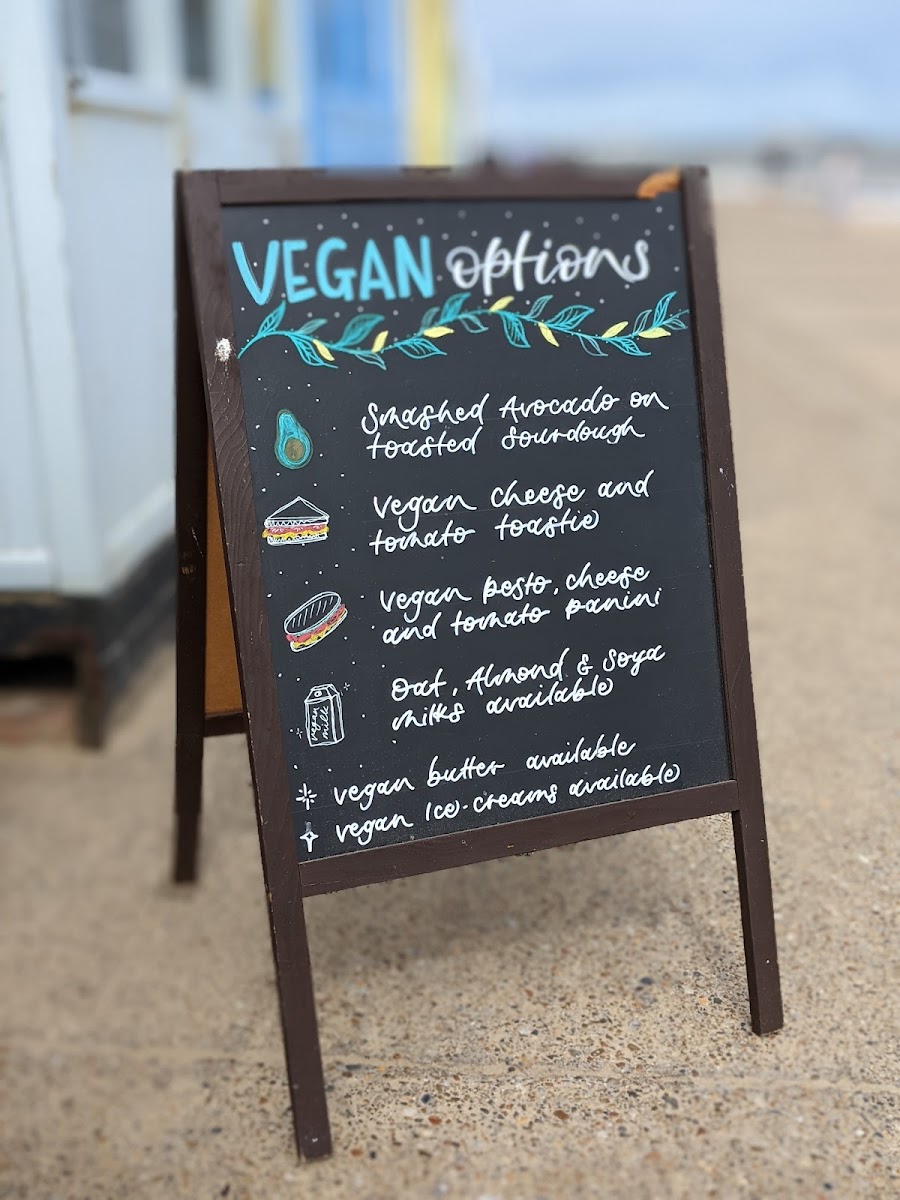 VEGAN options
Smashed Avocado on
toasted sourdough
vegan cheese and
tomato toastie
vegan pesto, cheese
and tomato panini
Oat, Almond & Soya
milks available
vegan milk
vegan butter available
vegan Ice-creams available